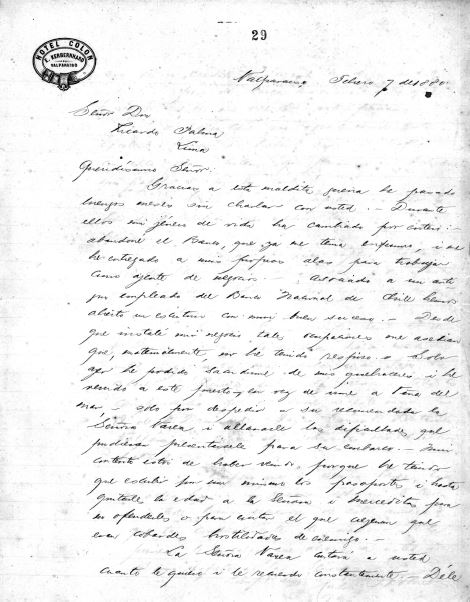 29
HOTEL COLON
E. KERBERNHARD
VALPARAISO
Valparaiso, Febrero 7 de 1880
Señor Don
Ricardo Palma
Lima
Queridísimo Señor:
Gracias a esta maldita guerra he pasado
luengos meses sin charlar con usted. — Durante
ellos mi jénero de vida ha cambiado por entero:
abandoné el Banco, que ya me tenia enfermo, i me
he entregado a mis propias alas para trabajar
como ajente de negocios. Asociado a un
empleado del Banco Nacional de Chile hemos
abierto un escritorio con mui buen suceso. — Desde
que instalé mi negocio, tales ocupaciones me asedian
que, materialmente, no he tenido respiro. — Solo
ayer he podido sacudirme de mis quehaceres i he
venido a este puerto, en vez de irme a Viña del
mar, — solo por despedir a su recomendada la
Señora Varea i allanarle las dificultades que
pudieran presentársele para su embarco. — Mui
contento estoi de haber venido, porque he tenido
que escribir yo mismo los pasaportes i hasta
quitarle la edad a la Señora i Merceditas para
no ofenderles o para evitar el que creyeran que
eran cobardes hostilidades de enemigo. —
La Señora Varea contará a usted
cuanto te quiero i le recuerdo constantemente. — Déle